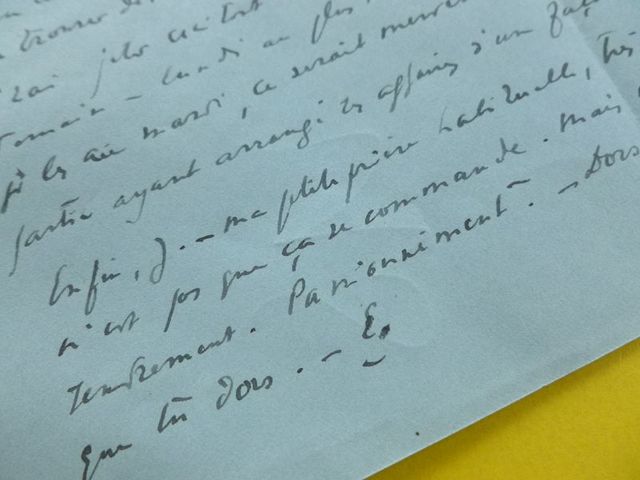 trouver
plus
demain - lundi au plus
si les ai mardi, ce serait
partie ayant arrangé les affaires d'un
Enfin, J. - ma ptite prière habituelle, très
n'est pas que ça se commande. Mais
tendrement. Passionnément. - Dors
que tu dors. - E.